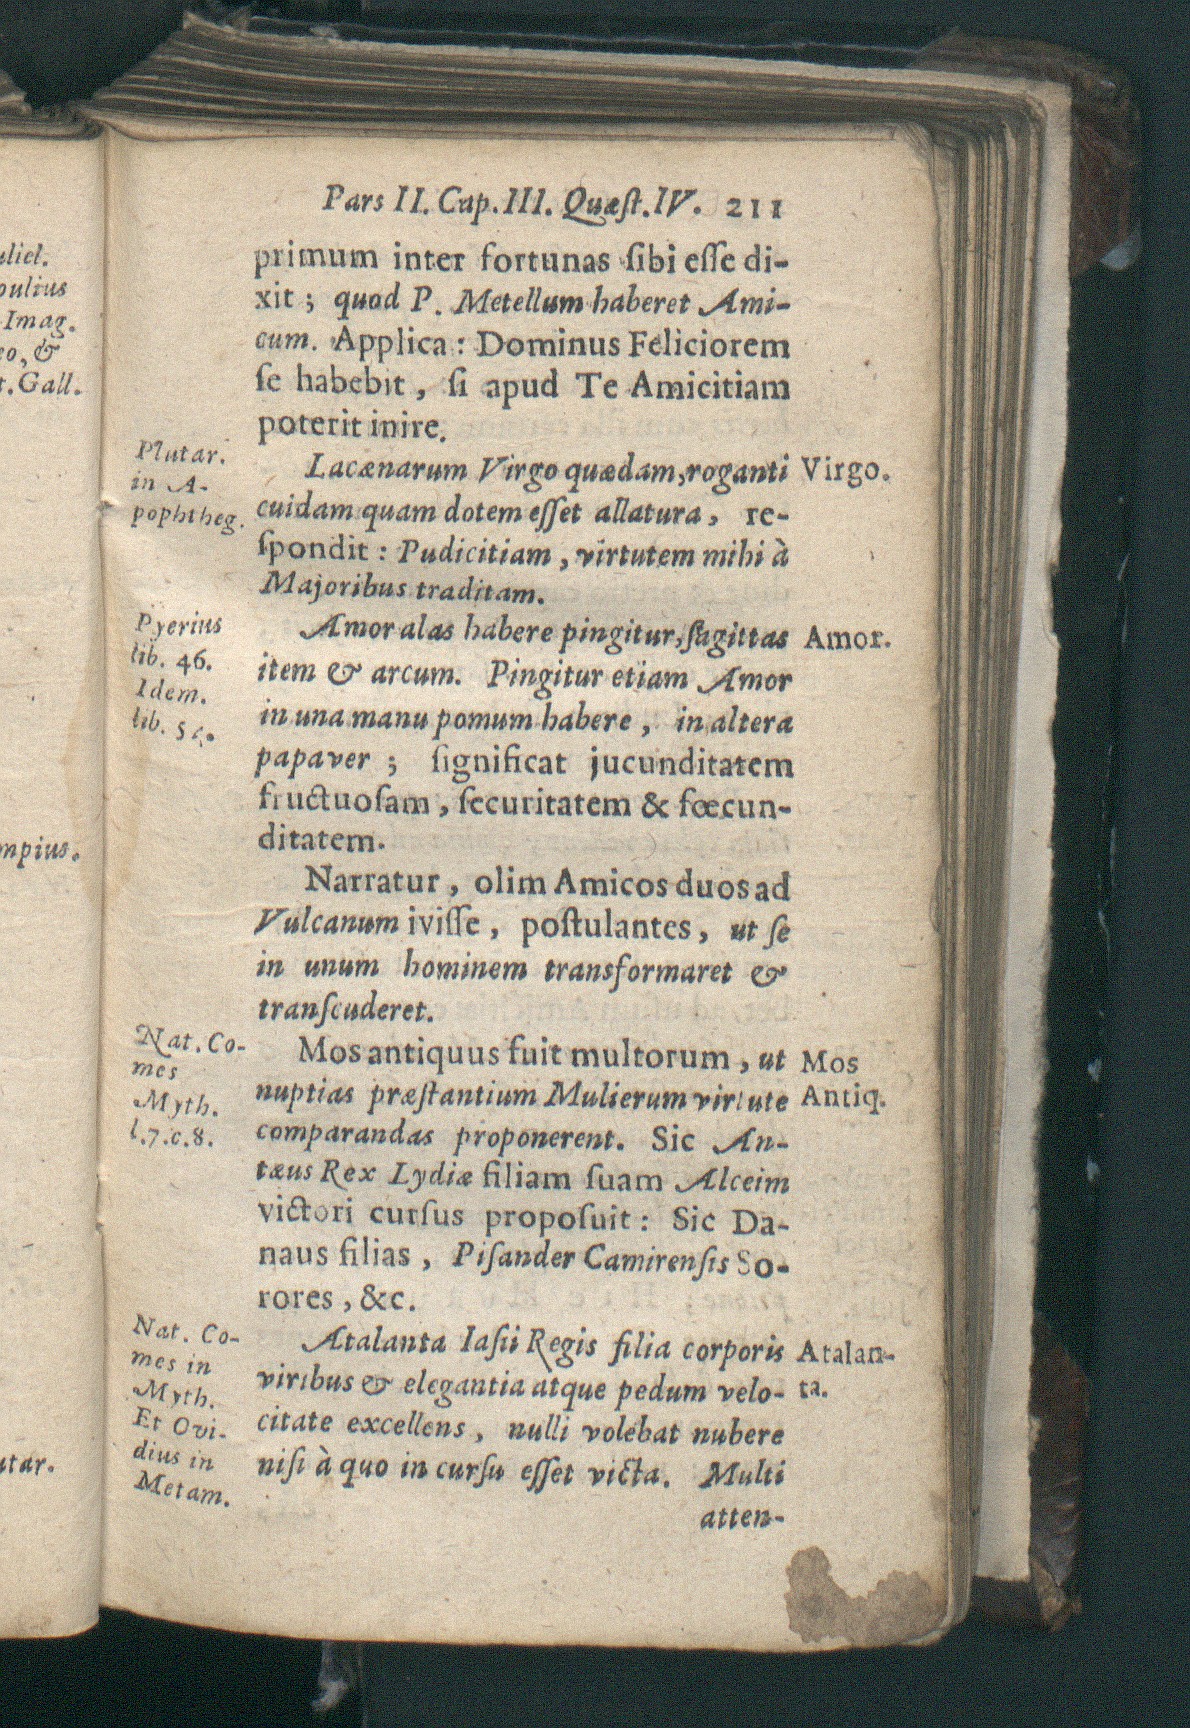 Pars II. Cap. III. Quæſt. IV. 211
primum inter fortunas ſibi eſſe di-
xit ; quod P. Metellum haberet Ami-
cum. Applica : Dominus Feliciorem
ſe habebit , ſi apud Te Amicitiam
poterit inire.
Plutar.
in A-
pophtheg.
Lacænarum Virgo quædam, roganti
cuidam quam dotem eſſet allatura, re-
ſpondit : Pudicitiam , virtutem mihi à
Majoribus traditam.
Virgo.
Pyerius
lib. 46.
Idem.
lib.
Amor alas habere pingitur, ſagittas
item & arcum. Pingitur etiam Amor
in una manu pomum habere , in altera
papaver ; ſignificat jucunditatem
fructuoſam , ſecuritatem & fœcun-
ditatem.
Amor.
Narratur , olim Amicos duos ad
Vulcanum iviſſe , poſtulantes , ut ſe
in unum hominem transformaret &
tranſcuderet.
Nat. Co-
mes
Myth.
l. 7. c. 8.
Mos antiquus fuit multorum , ut
nuptias præſtantium Mulierum virtute
comparandas proponerent. Sic An-
tæus Rex Lydiæ filiam ſuam Alceim
victori curſus propoſuit : Sic Da-
naus filias , Piſander Camirenſis So-
rores , &c.
Mos
Antiq.
Nat. Co-
mes in
Myth.
Et Ovi-
dius in
Metam.
Atalanta Iaſii Regis filia corporis
viribus & elegantia atque pedum velo-
citate excellens , nulli volebat nubere
niſi à quo in curſu eſſet victa. Multi
atten-
Atalan-
ta.
uliel.
pulius
Imag.
eo, &
t. Gall.
mpius.
utar.